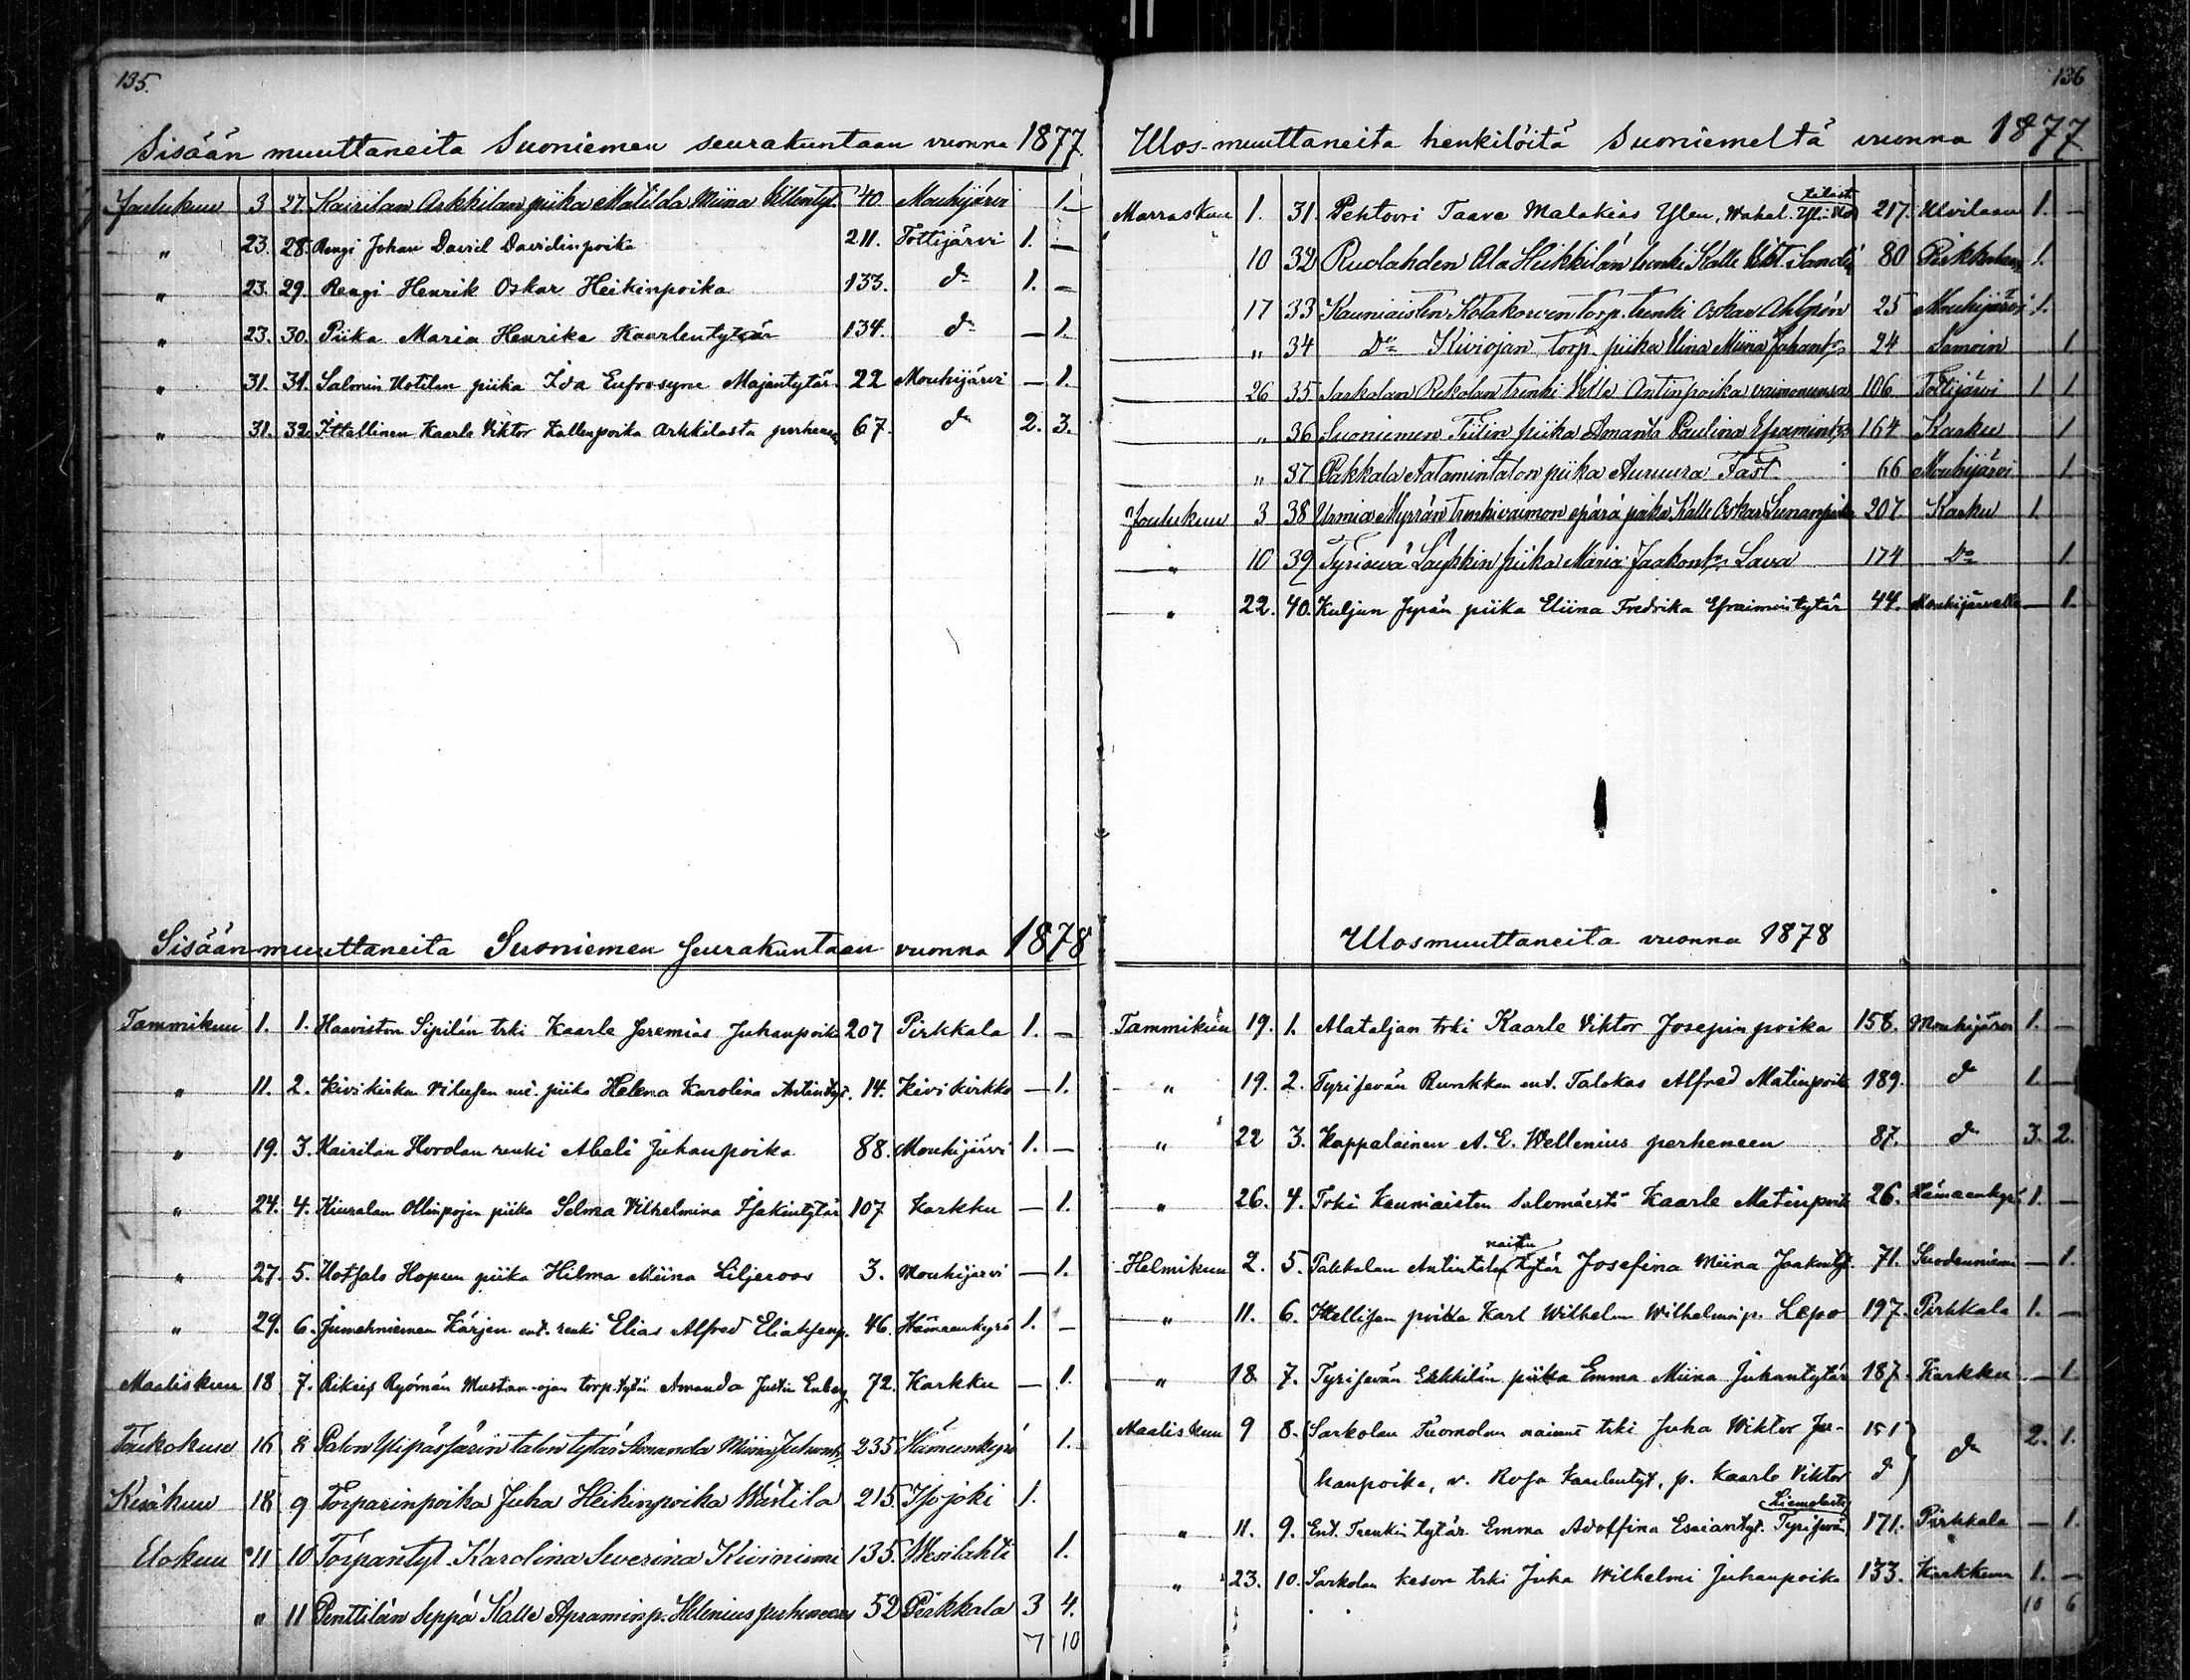 135.
Sisään muuttaneita Suoniemen seurakuntaan vuonna 1877.
Joulukuu 3 27. Kairilan Arkkilan piika Matilda Miina Villentyt. 40. Mouhijärvi 1.
" 23. 28. Rengi Johan David Davidinpoika 211. Tottijärvi 1. —
" 23. 29. Rengi Henrik Oskar Heikinpoika 133. do 1. —
" 23. 30. Piika Maria Henrika Kaarlentytär 134. do — 1.
" 31. 31. Salmin Uotilan piika Ida Eufrosyne Majantytär 22 Mouhijärvi — 1.
" 31. 32. Ittallinen Kaarle Viktor Kallenpoika Arkkilasta perheneen 67. do 2. 3.
Sisään muuttaneita Suoniemen seurakuntaan vuonna 1878
Tammikuu 1. 1. Haaviston Sipilän trki Kaarle Jeremias Juhanpoika 207 Pirkkala 1. —
" 11. 2. Kivikirkon piika Helena Karolina Antintyt. 14. Kivikirkko — 1.
" 19. 3. Kairilan Hordan renki Abeli Juhanpoika 88. Mouhijärvi 1. —
" 24. 4. Kiuralan Ollinpojan piika Selma Vilhelmina Isakintytär 107 Karkku — 1.
" 27. 5. Uotsalo Hopun piika Hilma Miina Liljeroos 3. Mouhijärvi — 1.
" 29. 6. Jumehniemen Kärjen ent. renki Elias Alfred Eliaksenp. 46. Hämeenkyrö 1. —
Maaliskuu 18 7. Ryömän Mustan-ojan torp. tytär Amanda Justin Enberg 72. Karkku — 1.
Toukokuu 16 8 Palon Ylipässärin talon tytär Amanda Miina Juhant. 235 Hämeenkyrö 1.
Kesäkuu 18 9 Torparinpoika Juha Heikinpoika Wästilä 215. Isojoki 1.
Elokuu 11 10 Torpantyt. Karolina Severina Kiviniemi 135. Wesilahti 1.
" 11 Penttilän Seppä Kalle Apraminp. Helenius perheneens 52 Pirkkala 3 4.
7 10
136
Ulos-muuttaneita henkilöitä Suoniemeltä vuonna 1877
Marraskuu 1. 31. Pehtoori Taave Malakias Ylen, Wahal. 217. Ulvilaan 1. —
10 32 Ruolahden Ala Heikkilän trenki Kalle Vikt. Sandé 80 Pirkkalaan 1.
17 33 Kauniaisten Kotakorven torp. trenki Oskar Ahlgrén 25 Mouhijärvi 1.
" 34 Do Kiviojan torp. piika Miina Juhant. 24 Samoin 1
26 35 Sarkolan Rekolan trenki Ville Antinpoika vaimonensa 106 Tottijärvi 1 1
" 36 Suoniemen Tiilin piika Amanta Paulina Efraimint. 164 Karku 1
" 37 Pakkala Aatamintalon piika Auruura Fast 66 Mouhijärvi 1
Joulukuu 3 38 Urmia Myrrän trenkivaimon epärä poika Kalle Oskar Leenanpoika 207 Karku 1.
" 10 39 Tyrisevä Läykkin piika Maria Jaakont. Lava 174 Do 1.
" 22. 40. Kuljun Jypän piika Eliina Fredrika Efraimintytär 44. Mouhijärvelle — 1.
Ulosmuuttaneita vuonna 1878
Tammikuu 19. 1. Alataljan trki Kaarle Viktor Josepinpoika 158. Mouhijärvi 1. —
" 19. 2. Tyrisevän Runkkan ent. Talokas Alfred Matinpoik 189. do 1. —
" 22 3. Kappalainen A. E. Wellenius perheneen 87. do 3. 2.
" 26. 4. Trki Kauniaisten Salomäestä Kaarle Matinpoik 26. Hämeenkyrö 1. —
naitu
Helmikuu 2. 5. Pakkalan Antintalon tytär Josefina Miina Jaakontyt. 71. Suodenniemi — 1.
" 11. 6. Itsellisen poika Karl Wilhelm Wilhelminp. Lepo 197. Pirkkala 1. —
" 18 7. Tyrisevän Erkkilän piika Emma Miina Juhantytär 187. Karkku — 1.
Maaliskuu 9 8. Sarkolan Tuomolan nainut trki Juha Wiktor Ju- 151 do 2. 1.
hanpoika, v. Rosa Kaarlentyt, p. Kaarle Viktor do
Liemolasta
" 11. 9. Ent. Trenkin tytär Emma Adolfina Esaiantyt. Tyrisevän 171. Pirkkala — 1.
" 23. 10. Sarkolan Keson trki Juha Wilhelmi Juhanpoika 133. Karkkuun 1. —
10 6